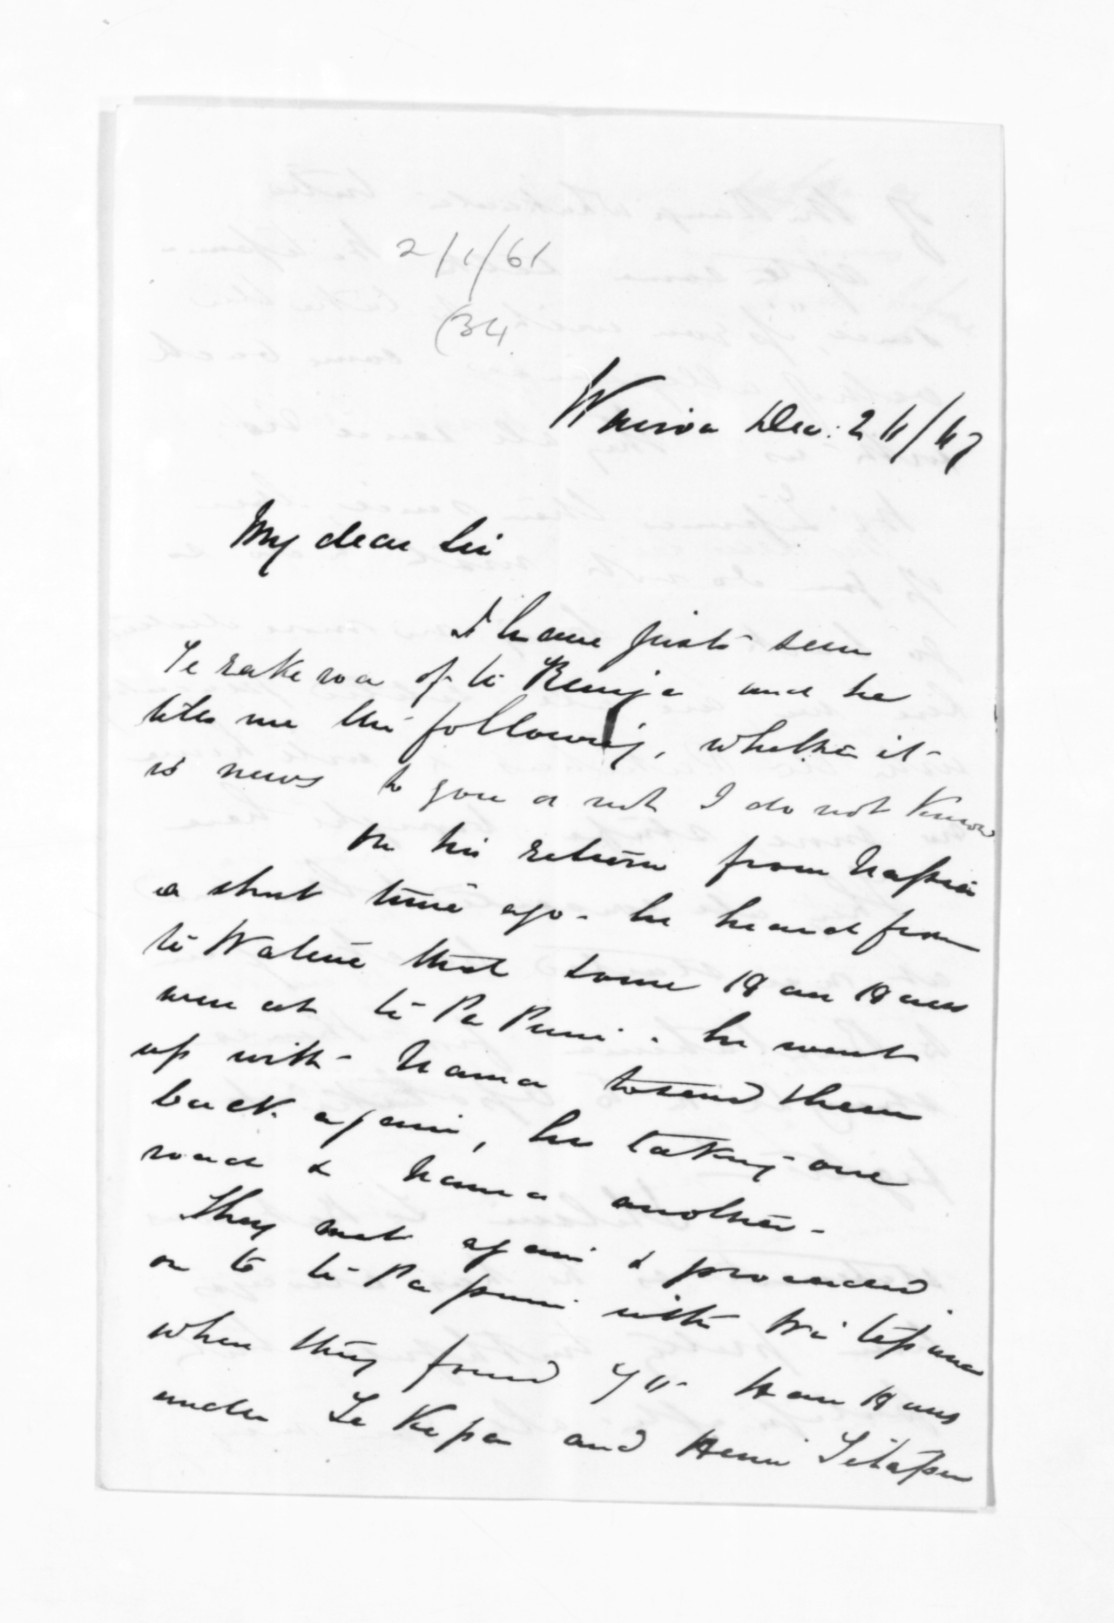 2/1/61
(34
Wairoa Dec: 24/67
My dear Sir
I have just seen
Te rakeroa of te Reinga and he
tells me the following, whether it
is news to you or not I do not know
On his return from Napier
a short time ago - he heard from
te Waline that some Hau Haus
were at te Pa Puni. he went
up with Hama to send them
back again, he taking one
road & Hama another -
They met again & proceeded
on to te Pa puni with Wi tipuna
when they found 74 Hau Haus
under Te Kepa and Henri